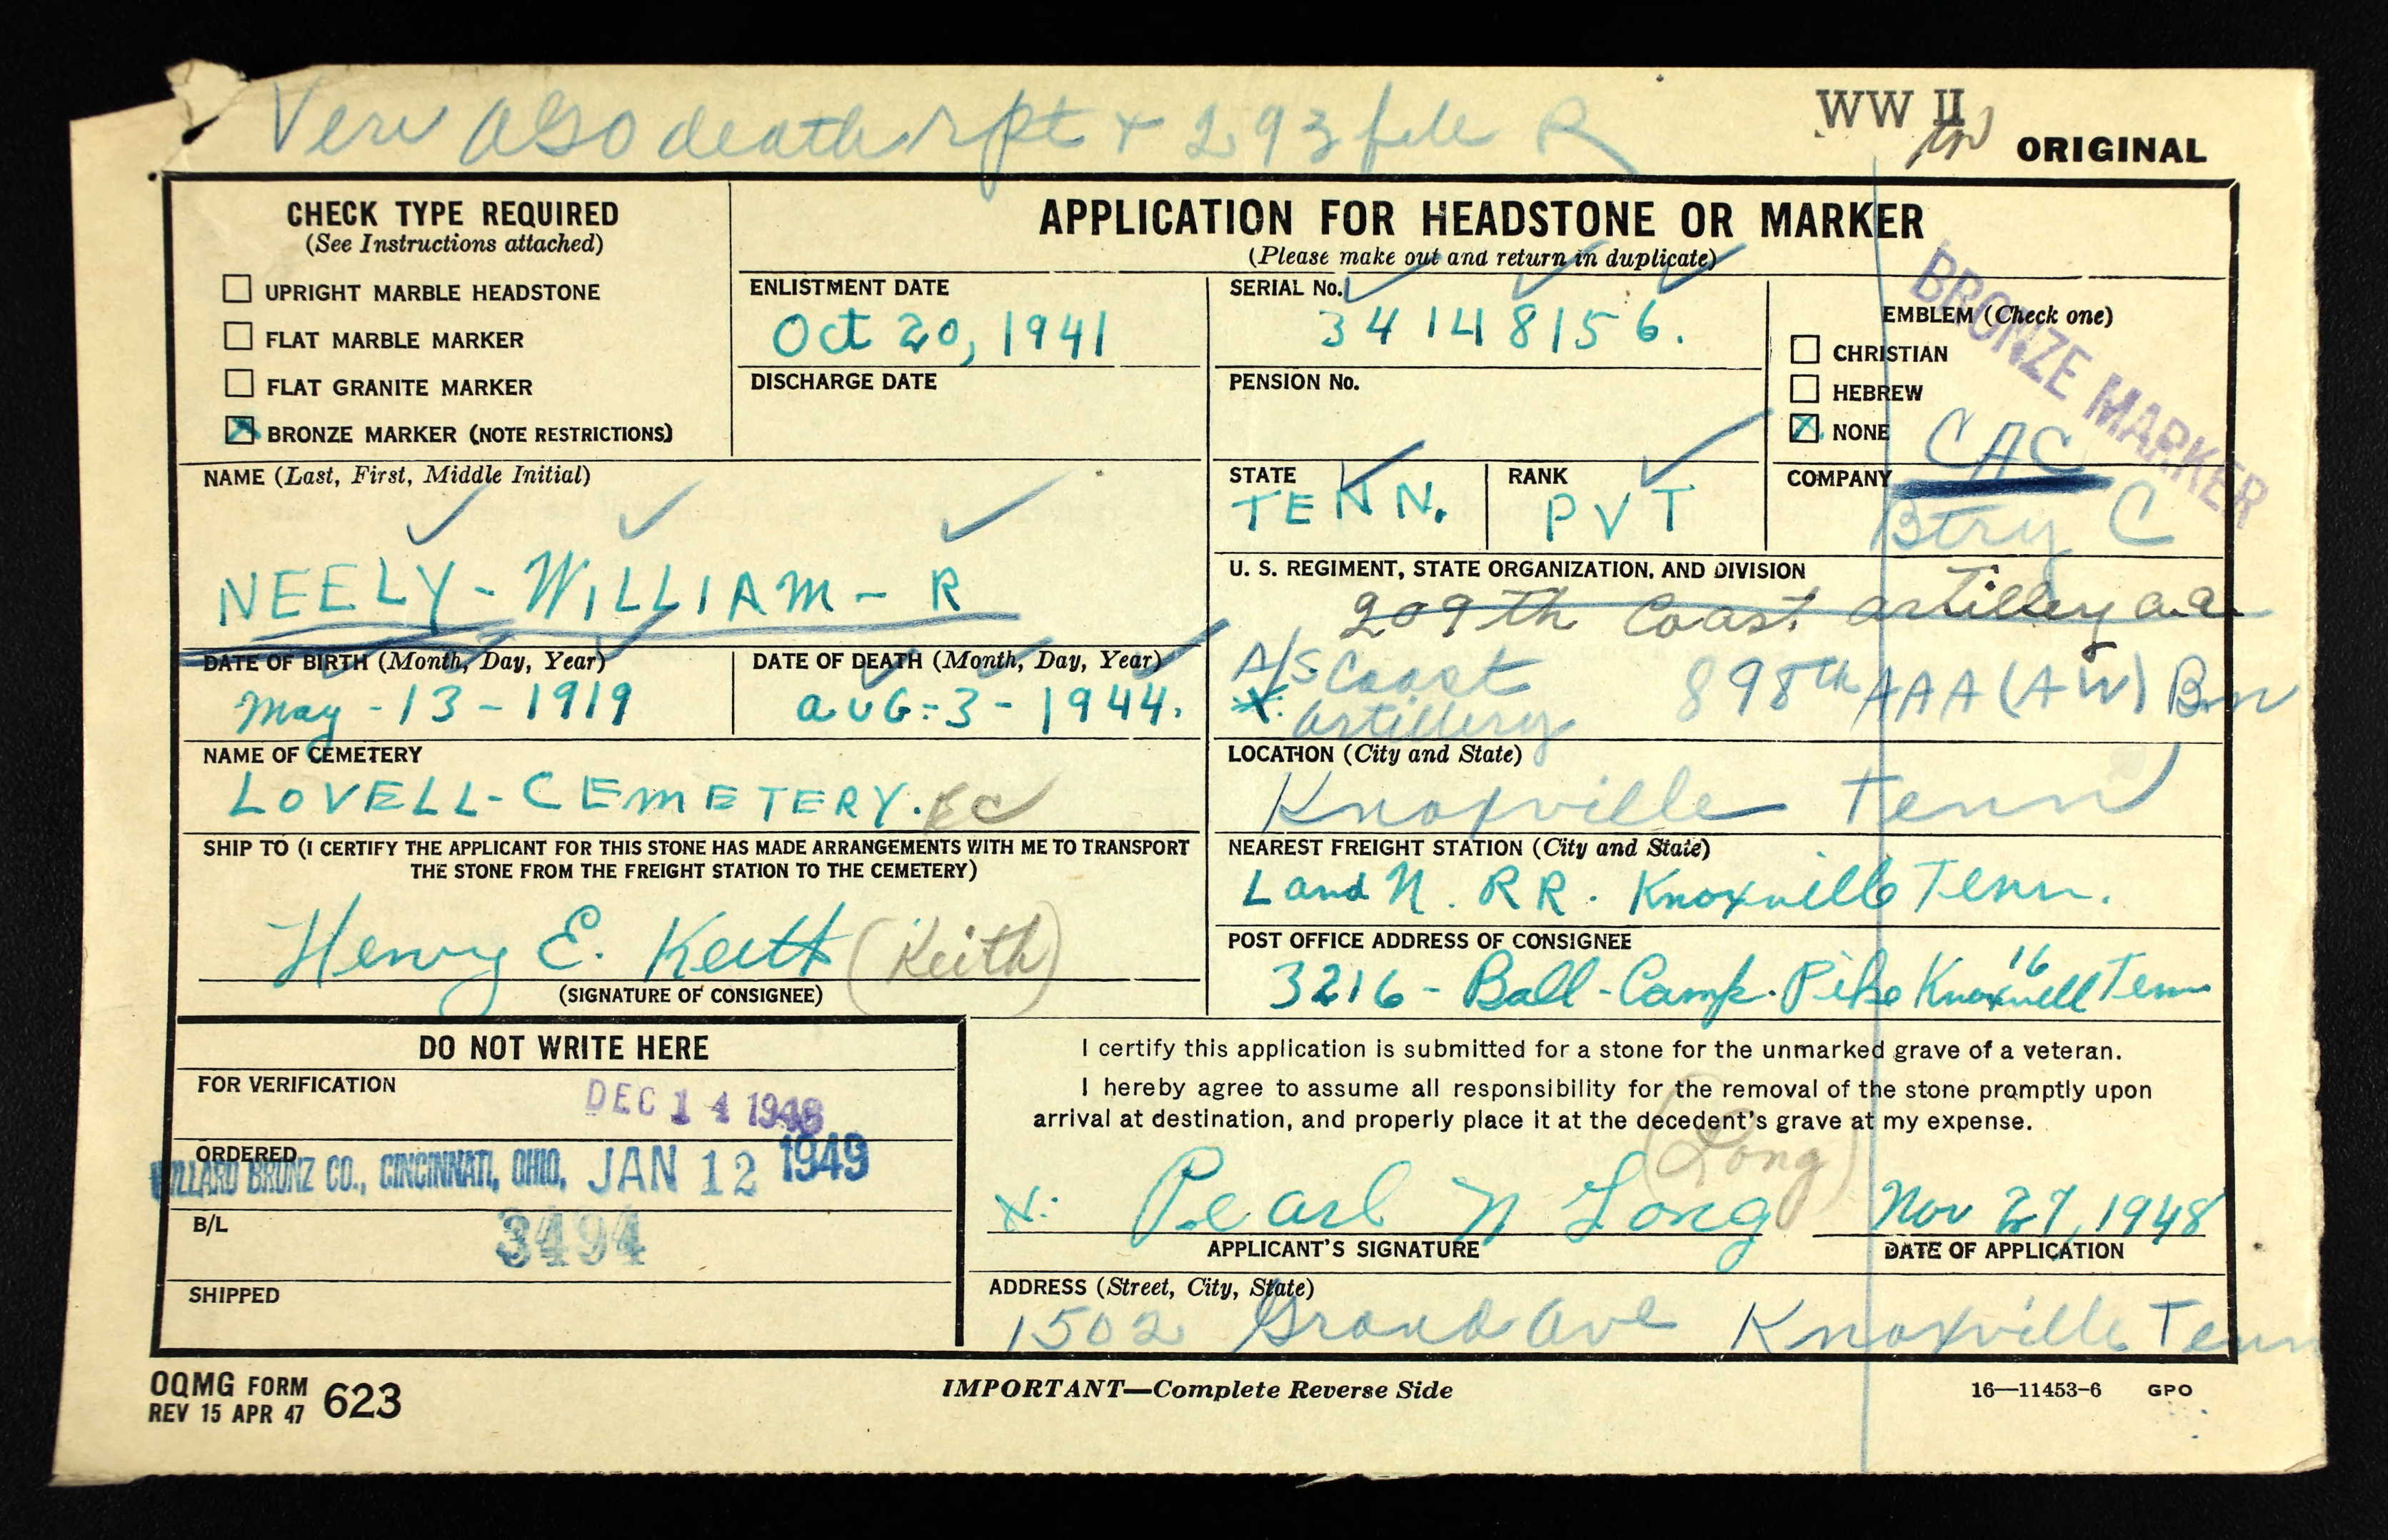 Veri also death rpt + 293 file R
WW II
ORIGINAL
CHECK TYPE REQUIRED
(See Instructions attached)
UPRIGHT MARBLE HEADSTONE
FLAT MARBLE MARKER
FLAT GRANITE MARKER
BRONZE MARKER (NOTE RESTRICTIONS)
APPLICATION FOR HEADSTONE OR MARKER
(Please make out and return in duplicate)
ENLISTMENT DATE
Oct 20, 1941
DISCHARGE DATE
SERIAL No.
34148156.
PENSION No.
EMBLEM (Check one)
CHRISTIAN
HEBREW
NONE
BRONZE MARKER
NAME (Last, First, Middle Initial)
NEELY - WILLIAM - R
STATE
TENN.
RANK
PVT
COMPANY
CAC
Btry C
U. S. REGIMENT, STATE ORGANIZATION, AND DIVISION
209th Coast artillery a.a.
A/S Coast 898th AAA (AW) Bn
X. artillery
DATE OF BIRTH (Month, Day, Year)
May - 13 - 1919
DATE OF DEATH (Month, Day, Year)
aUG - 3 - 1944.
NAME OF CEMETERY
LOVELL - CEMETERY. EC
LOCATION (City and State)
Knoxville Tenn
SHIP TO (I CERTIFY THE APPLICANT FOR THIS STONE HAS MADE ARRANGEMENTS WITH ME TO TRANSPORT
THE STONE FROM THE FREIGHT STATION TO THE CEMETERY)
Henry E. Keith (Keith)
(SIGNATURE OF CONSIGNEE)
NEAREST FREIGHT STATION (City and State)
L and N. RR. Knoxville Tenn.
POST OFFICE ADDRESS OF CONSIGNEE
3216 - Ball - Camp. Pike Knoxvell 16 Tenn
DO NOT WRITE HERE
FOR VERIFICATION
DEC 14 1948
ORDERED
WILLARD BRONZ CO., CINCINNATI, OHIO, JAN 12 1949
B/L
3494
SHIPPED
I certify this application is submitted for a stone for the unmarked grave of a veteran.
I hereby agree to assume all responsibility for the removal of the stone promptly upon
arrival at destination, and properly place it at the decedent's grave at my expense.
(Long)
X: Pearl N Long Nov 27, 1948
APPLICANT'S SIGNATURE
DATE OF APPLICATION
ADDRESS (Street, City, State)
1502 Grand Ave Knoxville Tenn
OQMG FORM 623
REV 15 APR 47
IMPORTANT—Complete Reverse Side
16—11453-6 GPO